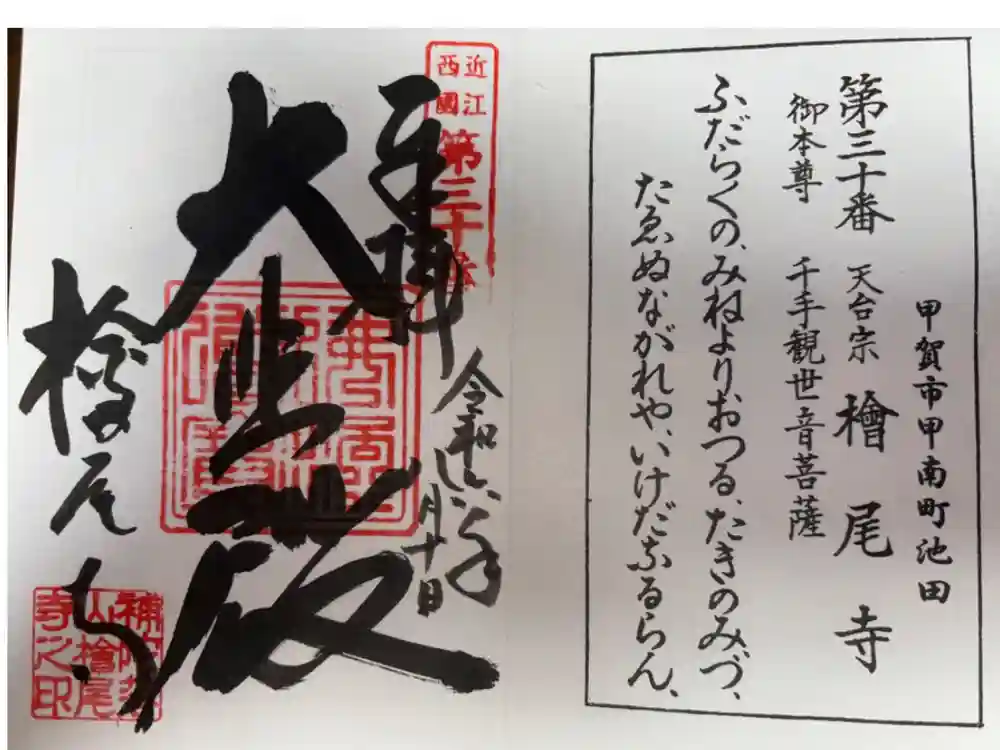 甲賀市甲南町池田
第三十番 天台宗 檜尾寺
御本尊 千手観世音菩薩
ふだらくの、みねよりおつる、たきのみづ、
たゑぬながれや、いけだなるらん、
近江
西國
第三十番
奉拝
令和六年
月十日
大悲殿
檜尾寺
補陀落
山檜尾
寺之印